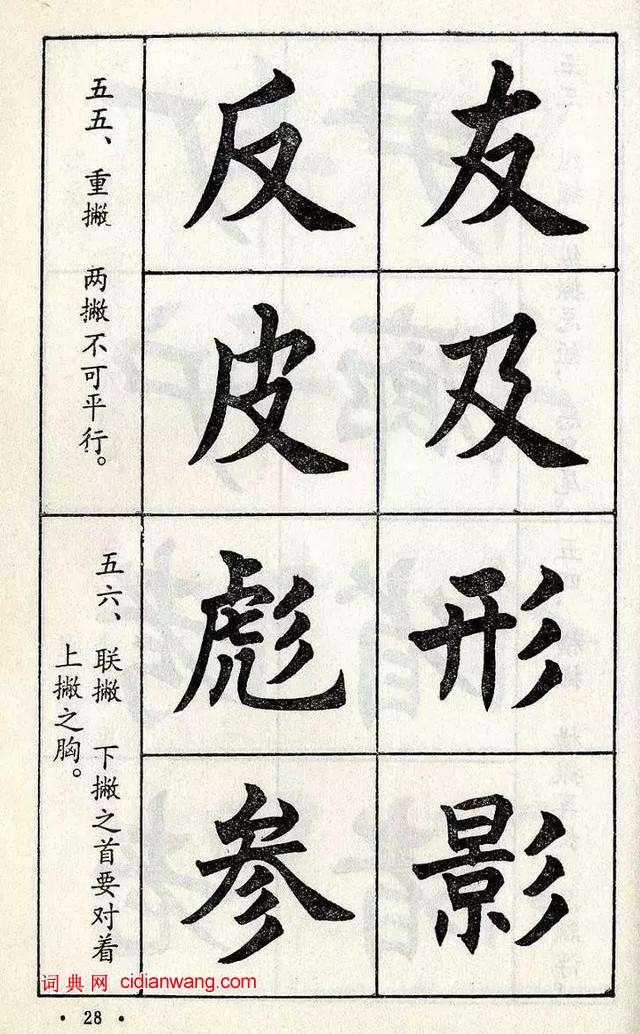 五五、重撇 两撇不可平行。
友反
及皮
五六、联撇 下撇之首要对着
上撇之胸。
形彪
影参
词典网 cidianwang.com
·28·